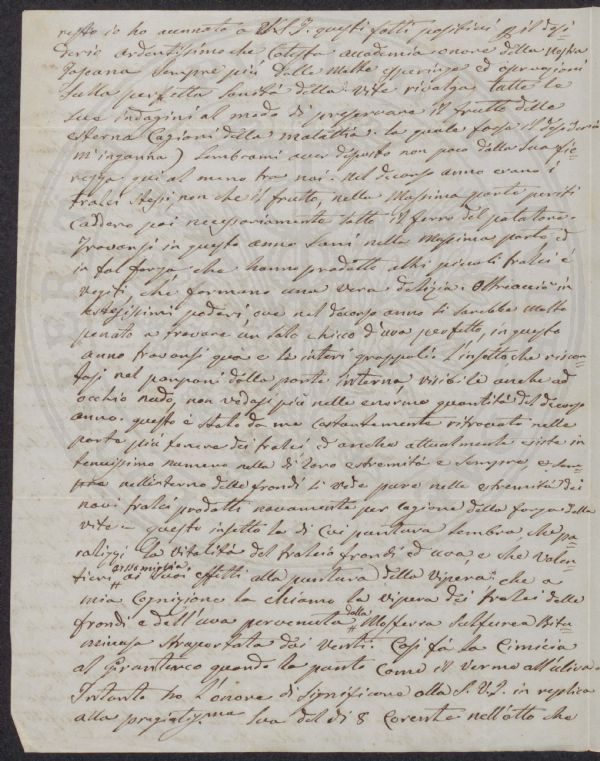 resto io ho accennato a V.S.I. questi fatti positivi il desi=
derio ardentissimo che cotesta accademia onore della nostra
Toscana sempre più dalle molte esperienze ed osservazioni
sulla perfetta sanità della vite rivolga tutte le
sue indagini al modo di preservare il frutto dalle
esterne cagioni della malattia. la quale forse il desiderio
m'inganna) sembrami aver deposto non poco della sua fie=
rezza qui al meno tra noi. nel decorso anno erano i
tralci stessi non che il frutto, nella massima parte periti
caddero poi necessariamente sotto il ferro del potatore.
Trovansi in questo anno sani nella massima parte ed
in tal forza che hanno prodotto altri piccoli tralci e
vegeti che formano una vera delizia. Oltracciò in
estesissimi poderi, ove nel decorso anno si sarebbe molto
penato a trovare un solo chicco d'uva perfetto, in questo
anno trovansi qua e là interi grappoli. L'insetto che riscon=
trasi nei pampani dalla parte interna, visibile anche ad
occhio nudo, non vedasi più nelle enorme quantità del decorso
anno. questo è stato da me costantemente ritrovato nelle
parte più tenera dei tralci ed anche attualmente esiste in
tenuissimo numero nelle di loro estremità e sempre, e sem=
pre nell'interno delle frondi si vede pure nelle estremità dei
novi tralci prodotti novamente per cagione della forza della
vite = questo insetto la di cui puntura sembra, che pa=
ralizzi la vitalità del tralcio frondi ed uva, e che volen=
tieri assomiglia ai suoi effetti alla puntura della vipera che a
mia cognizione la chiamo la vipera dei tralci delle
frondi e dell'uva pervenuta dalla Mosferra sulfurea Bitu=
minosa straportata dai venti. Così fà la Cimicia
al Giranterco quando la punte come il vermo all'uliva.
Intanto ho l'onore di significare alla S.V.I. in replica
alla pregiatis.ma sua del dì 8 Corente nell'atto che